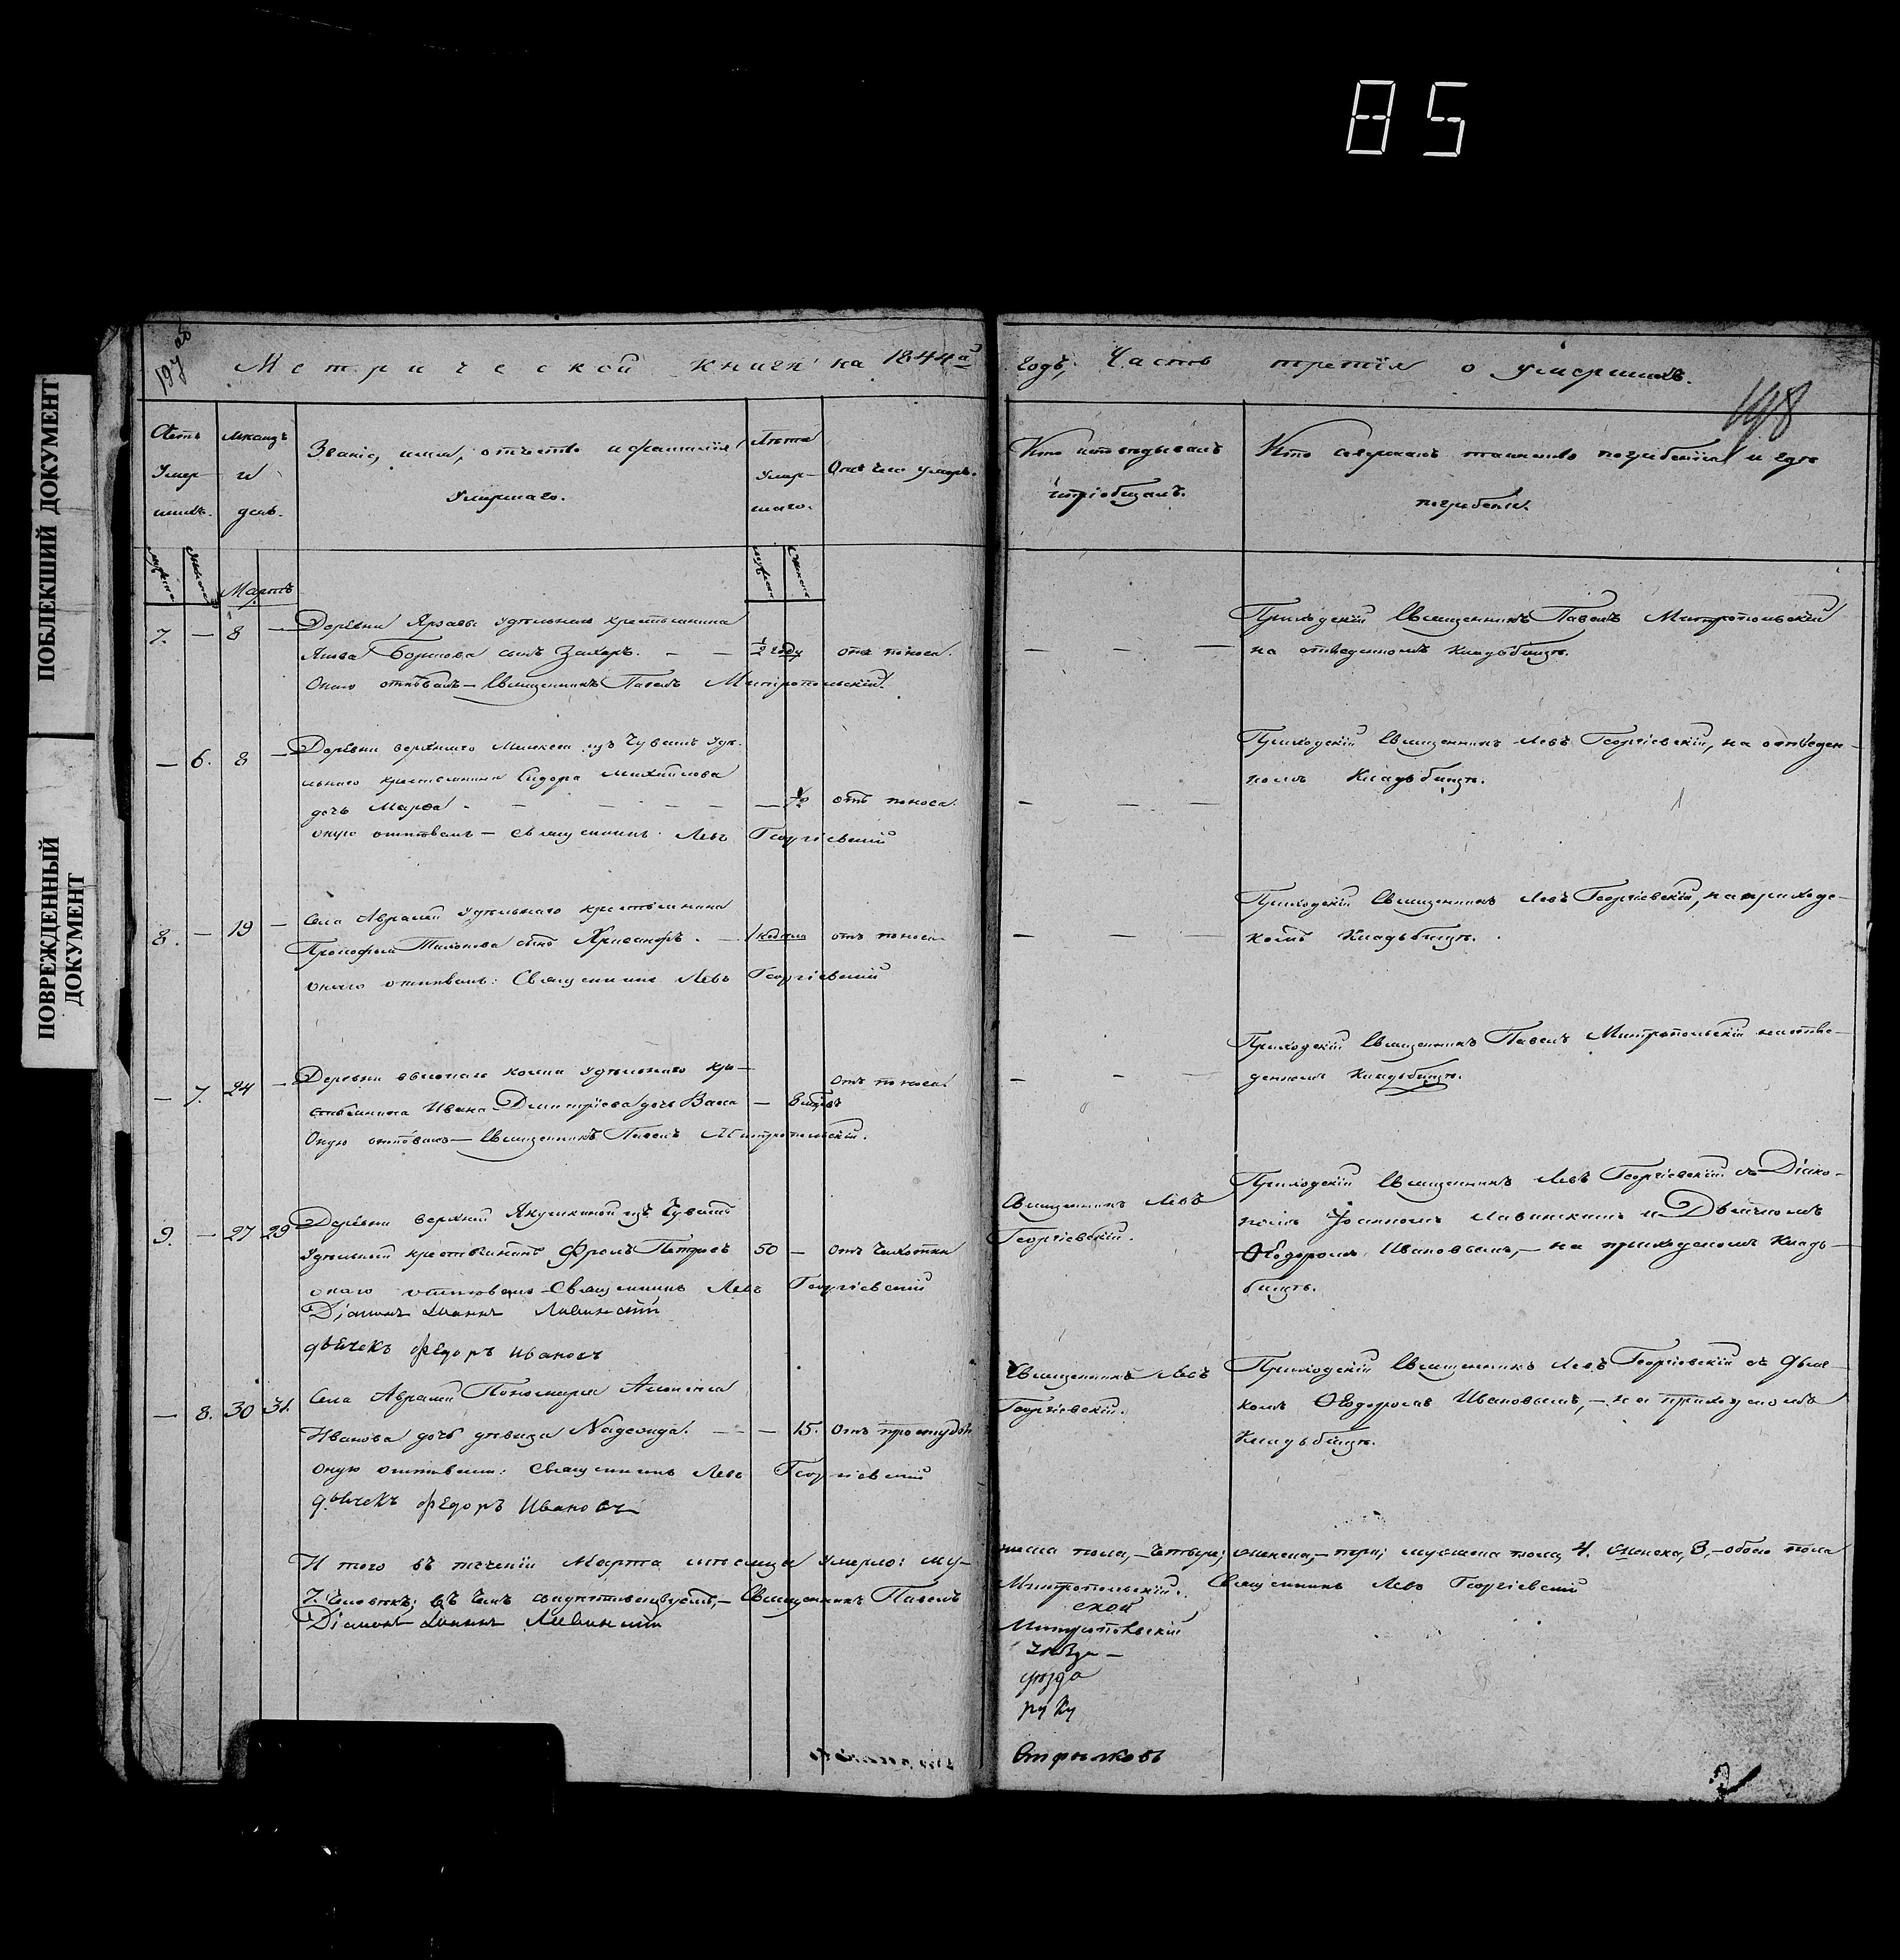 85
ПОБЛЕКШИЙ ДОКУМЕНТ
ПОВРЕЖДЕННЫЙ
ДОКУМЕНТ
197 об
Метрической книги на 1844й
годъ, Часть третія о умершихъ.
198
Счетъ
Умер-
шихъ.
Мѣсяцъ
и
день.
Званіе, имя, отчество и фамилія
Умершаго.
Лѣта
Умер-
шаго.
Отъ чего умеръ.
Кто исповѣдывалъ
и пріобщалъ.
Кто совершалъ таинство погребенія и гдѣ
погребены.
Мартъ
7. — 8 — Деревни удѣльнаго крестьянина
сынъ Захаръ. — — ½ году отъ поноса.
Онаго отпѣвалъ — Священникъ Павелъ Митропольскій.
— — —
Приходскій Священникъ Павелъ Митропольскій
на отведенномъ Кладбищѣ.
— 6. 8 — Деревни верхняго изъ Чувашъ удѣ-
льнаго крестьянина Сидора Михайлова
дочь Марѳа. — — — — отъ поноса.
оную отпѣвалъ — Священникъ Левъ Георгіевскій
— — —
Приходскій Священникъ Левъ Георгіевскій, на отведен-
номъ Кладьбищѣ.
8. — 19 — Села Аврамй удѣльнаго крестьянина
Прокофья Тихонова сынъ Хрисанфъ. — отъ поноса
онаго отпѣвалъ: Священникъ Левъ Георгіевскій
— — —
Приходскій Священникъ Левъ Георгіевскій, на приходс-
комъ Кладьбищѣ.
— 7. 24 — Деревни удѣльнаго кре-
стьянина Ивана Дмитріева дочь Васса — отъ поноса.
Оную отпѣвалъ — Священникъ Павелъ Митропольскій.
— — —
Приходскій Священникъ Павелъ Митропольскій на отве-
денномъ Кладьбищѣ.
9. — 27 29 Деревни верхней Якушкиной изъ Чувашъ
Удѣльный крестьянинъ Фролъ Петровъ 50 — отъ Чихотки
онаго отпѣвалъ Священникъ Левъ Георгіевскій
Діаконъ Іоаннъ Лавинскій
дьячекъ федоръ Ивановъ
Священникъ Левъ
Георгіевскій.
Приходскій Священникъ Левъ Георгіевскій съ Діако-
номъ Іоанномъ Лавинскимъ и Дьячкомъ
Ѳеодоромъ Ивановымъ, — на приходскомъ Кладь-
бищѣ.
— 8. 30 31. Села Аврамй Пономаря
Иванова дочь дѣвица Надежда. — — — 15. Отъ простуды
оную отпѣвали: Священникъ Левъ Георгіевскій
дьячекъ федоръ Ивановъ
Священникъ Левъ
Георгіевскій.
Приходскій Священникъ Левъ Георгіевскій съ дьяч-
комъ Ѳеодоромъ Ивановымъ, — на приходскомъ
Кладьбищѣ.
И того въ теченіи Марта мѣсяца умерло: му-
жеска пола, — Четыре; женска, — три; мужеска пола, 4. женска, 3, — обоего пола
7. Человѣкъ; въ чемъ свидѣтельствуемъ, — Священникъ Павелъ
Митропольскій. Священникъ Левъ Георгіевскій
Діаконъ Іоаннъ Лавинскій
ской
уѣзда
руку
Стрѣлковъ